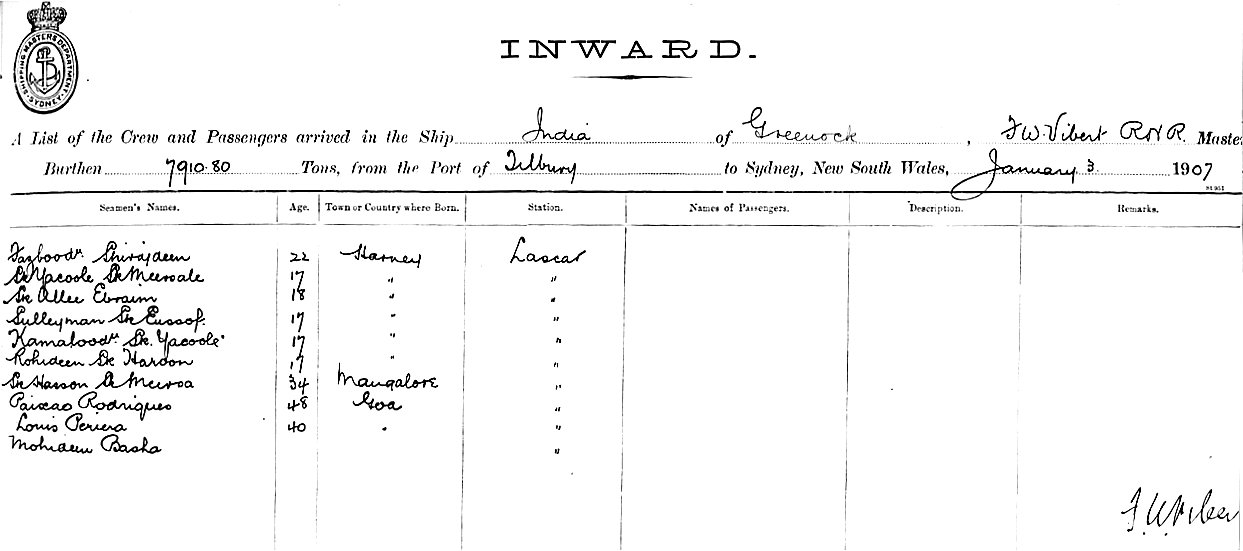 SHIPPING MASTERS DEPARTMENT. SYDNEY
INWARD.
A List of the Crew and Passengers arrived in the Ship India of Greenock, F W. Vibert R N R. Master
Burthen 7910.80 Tons, from the Port of Tilbury to Sydney, New South Wales, January 3 1907
Seamen's Names. Age. Town or Country where Born. Station. Names of Passengers. Description. Remarks.
22 Lascar
Sk Yacoole Sk 17 " "
Sk Allee Ebraim 18 " "
Sulleyman Sk Eussof. 17 " "
Kamalood Sk. Yacoole 17 " "
Sk Haroon 17 " "
Sk Hasson 34 Mangalore "
Paixao Rodrigues 48 Goa "
Louis Periera 40 " "
Mohideen Basha "